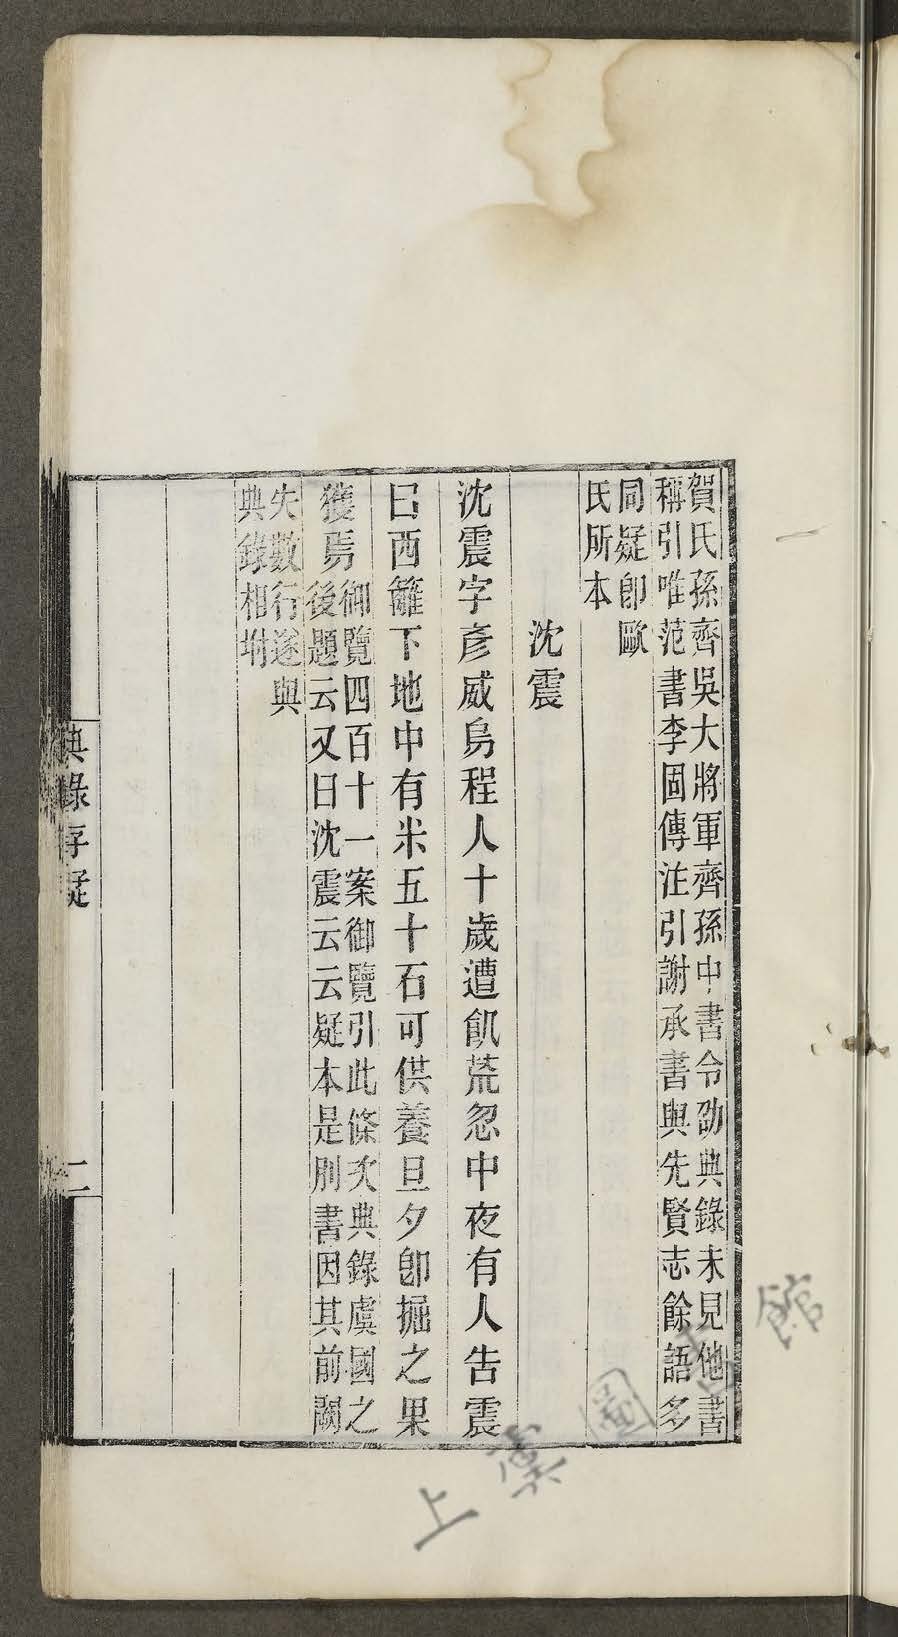 賀氏孫齊吳大將軍齊孫中書令劭典錄未見他書
稱引唯范書李固傳注引謝承書與先賢志餘語多
同疑卽歐
氏所本
沈震
沈震字彥威烏程人十歲遭飢荒忽中夜有人告震
曰西籬下地中有米五十石可供養旦夕卽掘之果
獲焉
御覽四百十一案御覽引此條次典錄虞國之
後題云又曰沈震云云疑本是別書因其前闕
失數行遂與
典錄相坿
典錄存疑
二
上虞圖書館